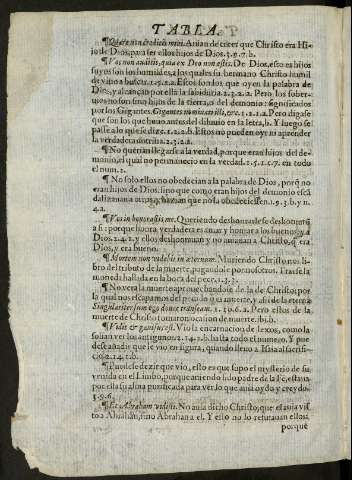 TABLA.
¶Quare non creditis mihi. Auian de creer que Christo era Hi-
jo de Dios, para ser ellos hijos de Dios. 3.9.7.b.
¶Vos non auditis, quia ex Deo non estis. De Dios, esto es hijos
suyos son los humildes, a los quales su hermano Christo humil
de vino a buscar. Estos son los que oyen la palabra de
Dios, y alcançan por ella la sabiduria. Pero los sober-
uios no son sino hijos de la tierra, o del demonio: significados
por los Gigantes. Pero digase
que son los que
pase a lo que se dize Estos no pueden oyr ni aprender
la verdadera dotrina.
¶No querian llegarse a la verdad, porque eran hijos del de-
monio, el qual no permanecio en la verdad. en todo
el num.1.
¶No solo ellos no obedecian a la palabra de Dios, porq no
eran hijos de Dios: sino que como eran hijos del demonio escã
dalizauan a otros, y hazian que no la obedeciessen. 1.9.3.b. y n.
4.2.
¶Vos inhonorastis me. Queriendo deshonrarle se deshonrauã
a si: porque la honra verdadera es amar y honrar a los buenos y a
Dios. y ellos deshonrauan y no amauan a Christo, q era
Dios, y era bueno.
¶Mortem non videbit in aeternum. Muriendo Christo nos li-
bro del tributo de la muerte, pagandole por nosotros. Traese la
moneda hallada en la boca del pece. 1.3.3.
¶No vera la muerte aprouechandose de la de Christo: por
la qual nos escapamos del pecado q es muerte, y assi de la eterna
Singulariter sum ego donec transeam. Pero ellos de la
muerte de Christo tomaron ocasion de muerte. ibi.b.
¶Vidit & gauisus est. Vio la encarnacion de lexos, como la
solian ver los antiguos. hasta todo el numero. Y pue
dese añadir que le vio en figura, quando lleuo a Isaac al sacrifi-
cio. 2.14.1.b.
¶Puedese dezir que vio, esto es que supo el mysterio de su
venida en el Limbo, porque auiendo sido padre de la Fe, estaua
por ella su alma purificada para ver lo que auia oydo y creydo.
3.9.6.
¶Et Abraham vidisti. No auia dicho Christo, que el auia vis
to a Abraham, sino Abraham a el. Y ello no lo refutauan ellos:
porquè